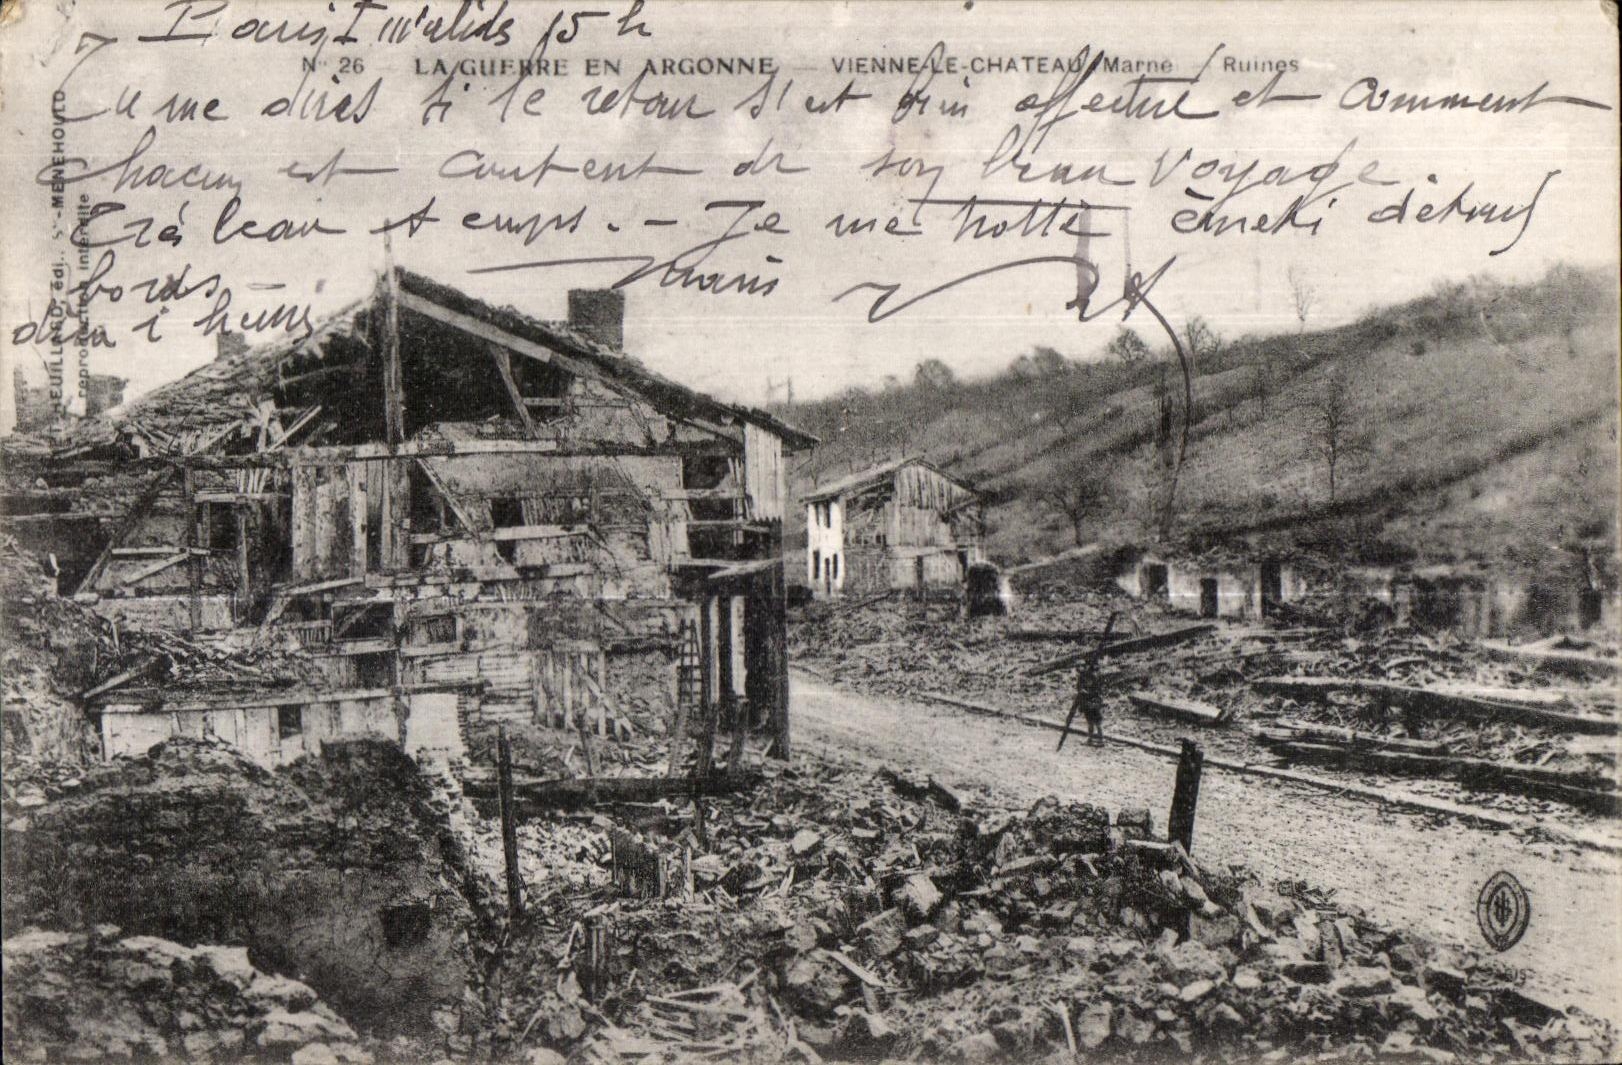 Paris Invalids 15 h
N° 26 — LA GUERRE EN ARGONNE — VIENNE-LE-CHATEAU (Marne) — Ruines
Tu me diras si le retour s'est bien effectué et comment
chacun est content de son beau voyage.
Très beau temps. - Je me
bords
HEUILLARD, édi., Ste-MENEHOULD
reproduction interdite
PARIS